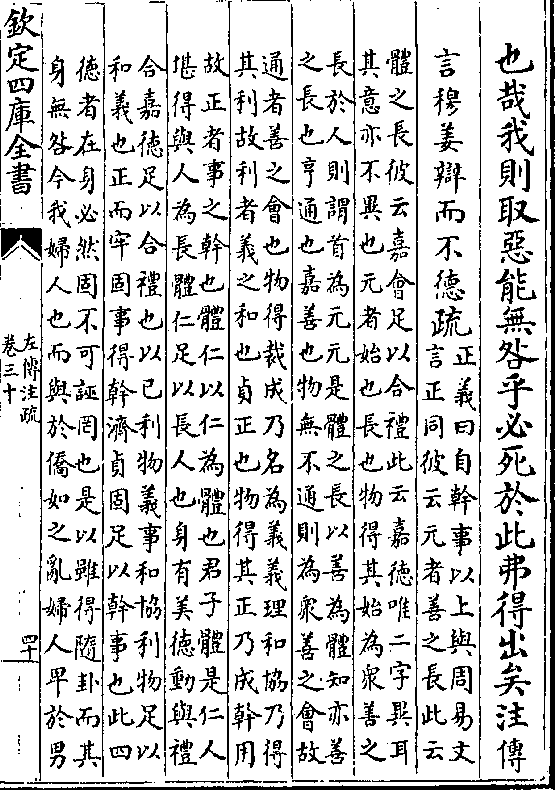 也哉我則取惡能無咎乎必死於此弗得出矣注傳
言穆姜辯而不德疏
正義曰自幹事以上與周易文
言正同彼云元者善之長此云
體之長彼云嘉會足以合禮此云嘉德唯二字異耳
其意亦不異也元者始也長也物得其始為衆善之
長於人則謂首為元元是體之長以善為體知亦善
之長也亨通也嘉善也物無不通則為衆善之會故
通者善之會也物得裁成乃名為義義理和協乃得
其利故利者義之和也貞正也物得其正乃成幹用
故正者事之幹也體仁以仁為體也君子體是仁人
堪得與人為長體仁足以長人也身有美德動與禮
合嘉德足以合禮也以己利物義事和協利物足以
和義也正而牢固事得幹濟貞固足以幹事也此四
德者在身必然固不可誣罔也是以雖得隨卦而其
身無咎今我婦人也而與於僑如之亂婦人卑於男
欽定四庫全書
左傳注疏
卷三十
四十